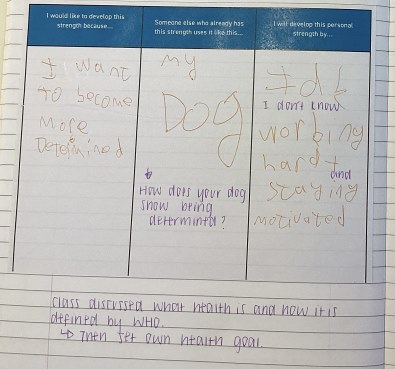 I would like to develop this
strength because...
Someone else who already has
this strength uses it like this...
I will develop this personal
strength by...
I want
to become
more
Determined
my
Dog
How does your dog
show being
determined?
Idk
I don't know
working
hard
and
staying
motivated
Class discussed what health is and how it is
defined by WHO.
↳ Then set own health goal